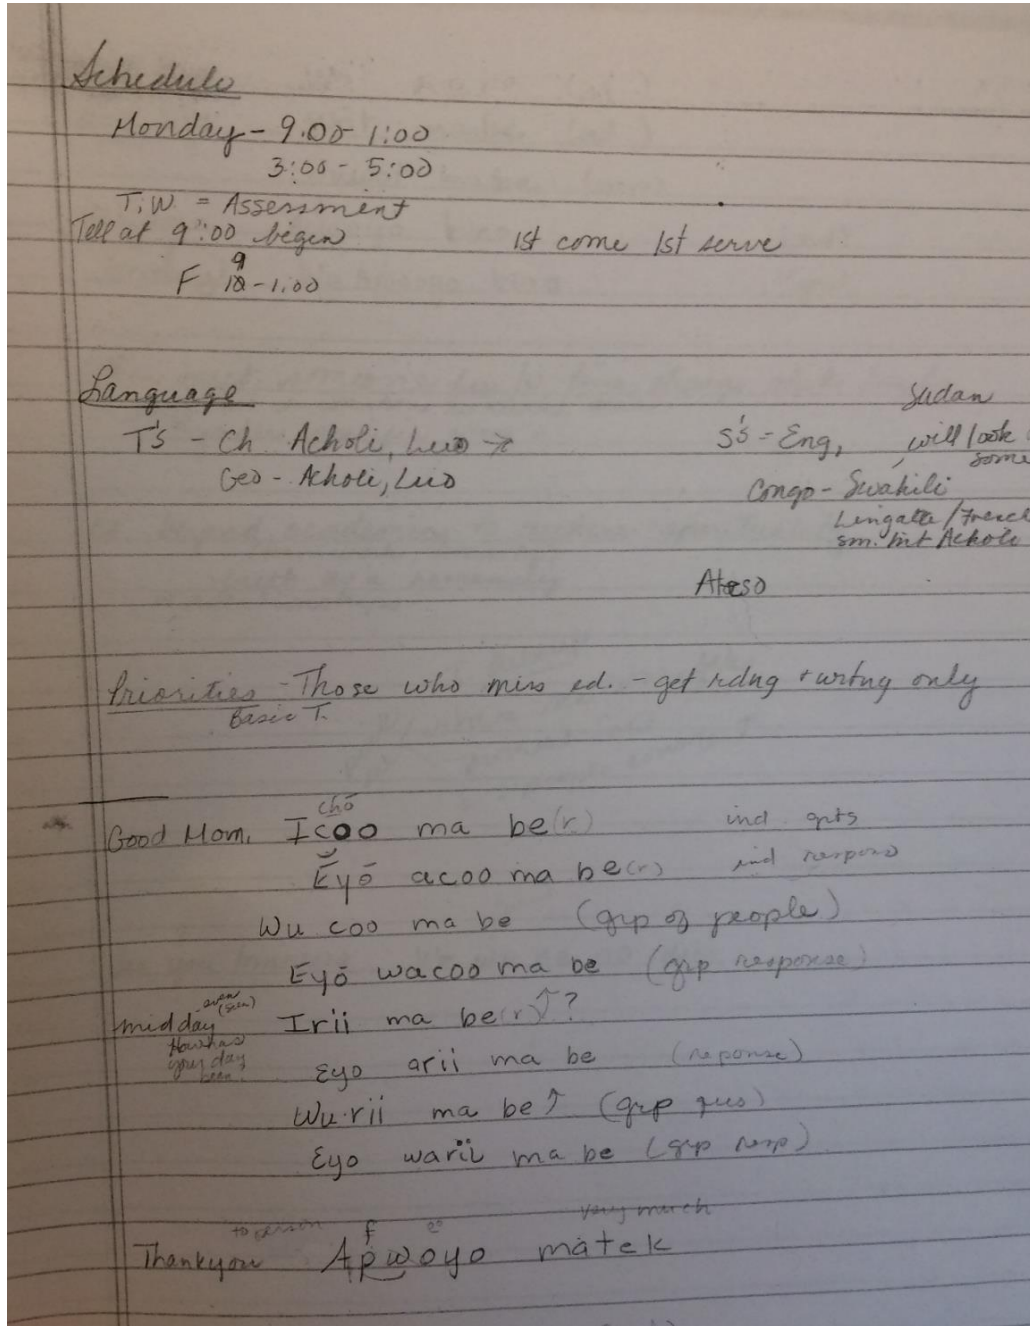 Schedule
Monday - 9.00 - 1:00
3:00 - 5:00
T, W = Assessment
Tell at 9:00 begin 1st come 1st serve
9
F 10 - 1.00
Language Sudan
T's - Ch Acholi, Luo → S's = Eng, will look
some
Geo - Acholi, Luo Congo - Swahili
Lingatta / French
sm. bit Acholi
Ateso
Priorities - Those who miss ed. - get rdng + wrtng only
Basic T.
chō
Good Morn, Icoo ma be(r) ind grts
Eyō acoo ma be(r) ind respons
Wu coo ma be (grp of people)
Eyō wacoo ma be (grp response)
midday Irii ma be(r) ↑?
How has
your day
been.
Eyo arii ma be (reponse)
Wu rii ma be ↑ (grp ques)
Eyo warii ma be (grp resp)
to person f very much
Thankyou Apwoyo matek